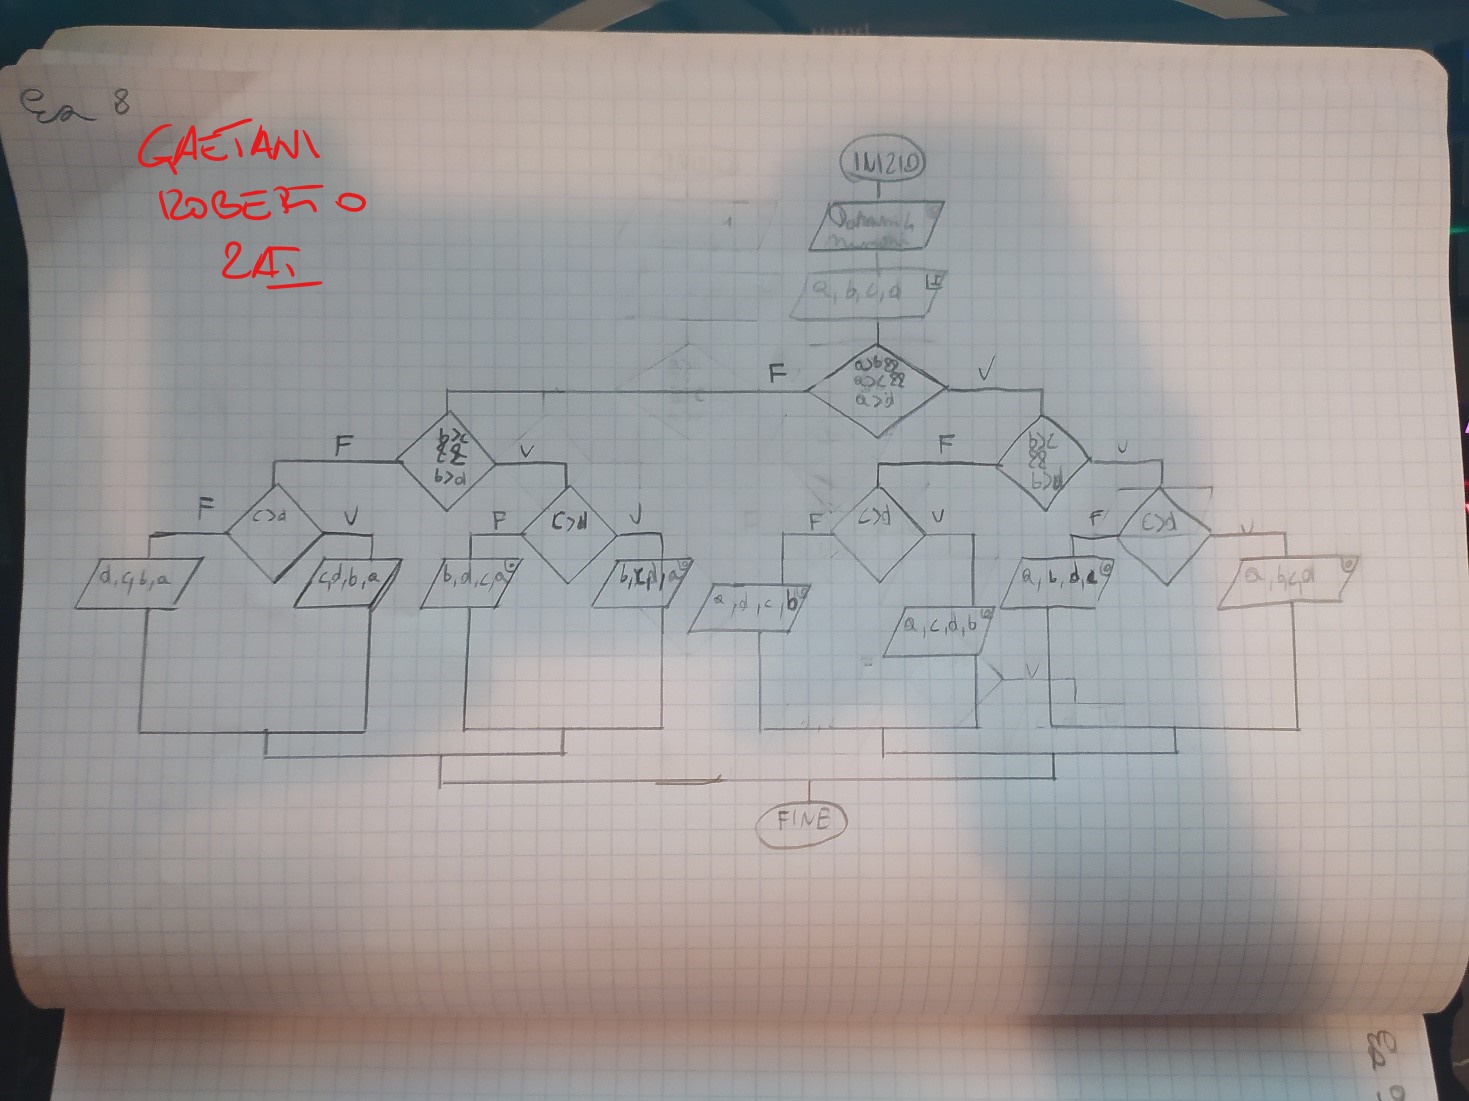 Es 8
GAETANI
ROBERTO
2AI
INIZIO
Dammi 4
numeri
a, b, c, d
F
a>b&&
a>c&&
a>d
V
F
b>c
&&
b>d
V
F
b>c
&&
b>d
V
F
c>d
V
F
c>d
V
F
c>d
V
F
c>d
V
d,c,b,a
c,d,b,a
b,d,c,a
b,c,d,a
a,d,c,b
a,c,d,b
a,b,d,c
a,b,c,d
V
FINE
Es 9